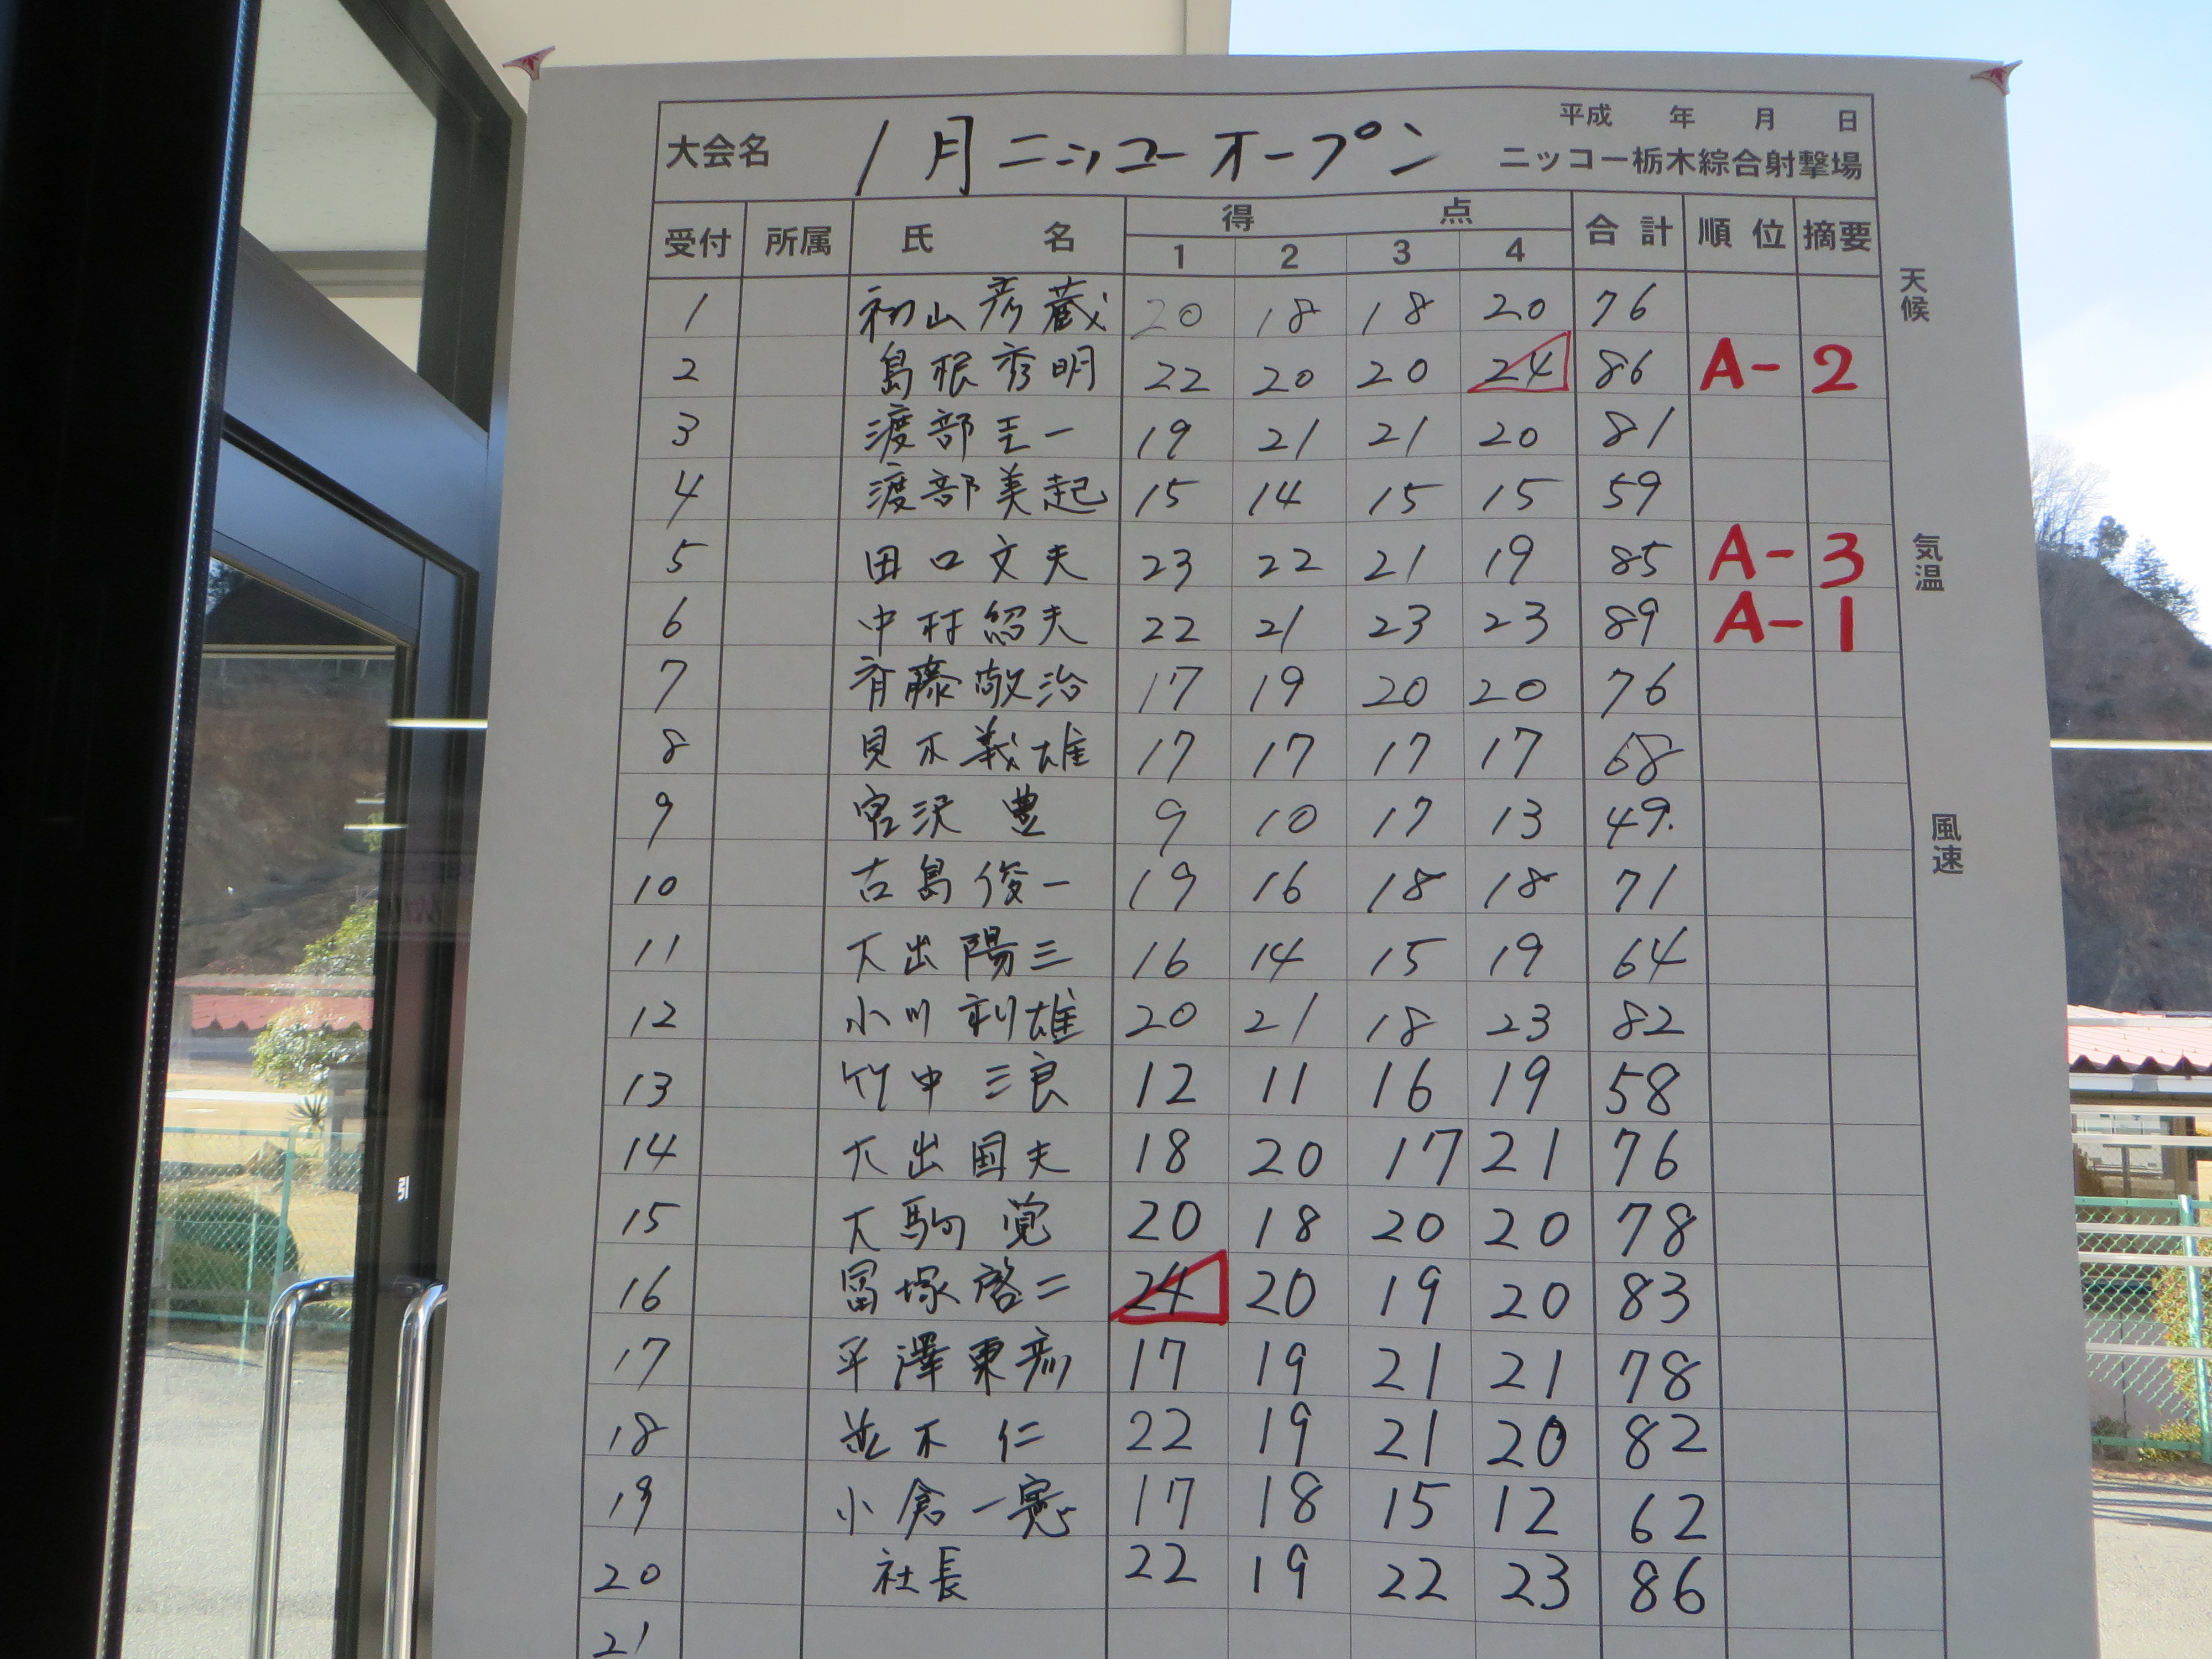 平成 年 月 日
大会名 1月ニッコーオープン ニッコー栃木綜合射撃場
受付 所属 氏名 得点 合計 順位 摘要
1 2 3 4
1 初山彦蔵 20 18 18 20 76
2 島根秀明 22 20 20 24 86 A-2
3 渡部王一 19 21 21 20 81
4 渡部美起 15 14 15 15 59
5 田口文夫 23 22 21 19 85 A-3
6 中村紹夫 22 21 23 23 89 A-1
7 斉藤敬治 17 19 20 20 76
8 貝木義雄 17 17 17 17 68
9 宮沢豊 9 10 17 13 49.
10 古島俊一 19 16 18 18 71
11 大出陽三 16 14 15 19 64
12 小川利雄 20 21 18 23 82
13 竹中三良 12 11 16 19 58
14 大出国夫 18 20 17 21 76
15 大駒覚 20 18 20 20 78
16 冨塚啓二 24 20 19 20 83
17 平澤東彦 17 19 21 21 78
18 並木仁 22 19 21 20 82
19 小倉一寛 17 18 15 12 62
20 社長 22 19 22 23 86
21
天候
気温
風速
引